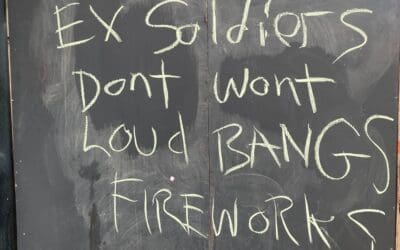 Ex Soldiers
Dont Wont
Loud BANGS
FIREWORKS